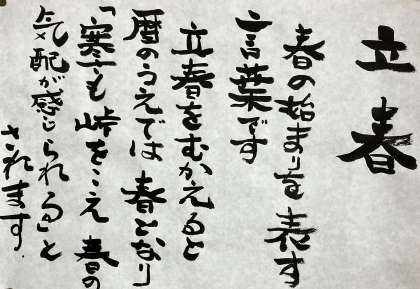 立春
春の始まりを表す
言葉です
立春をむかえると
暦のうえでは春となり
「寒さも峠をこえ春の
気配が感じられる」と
されます.